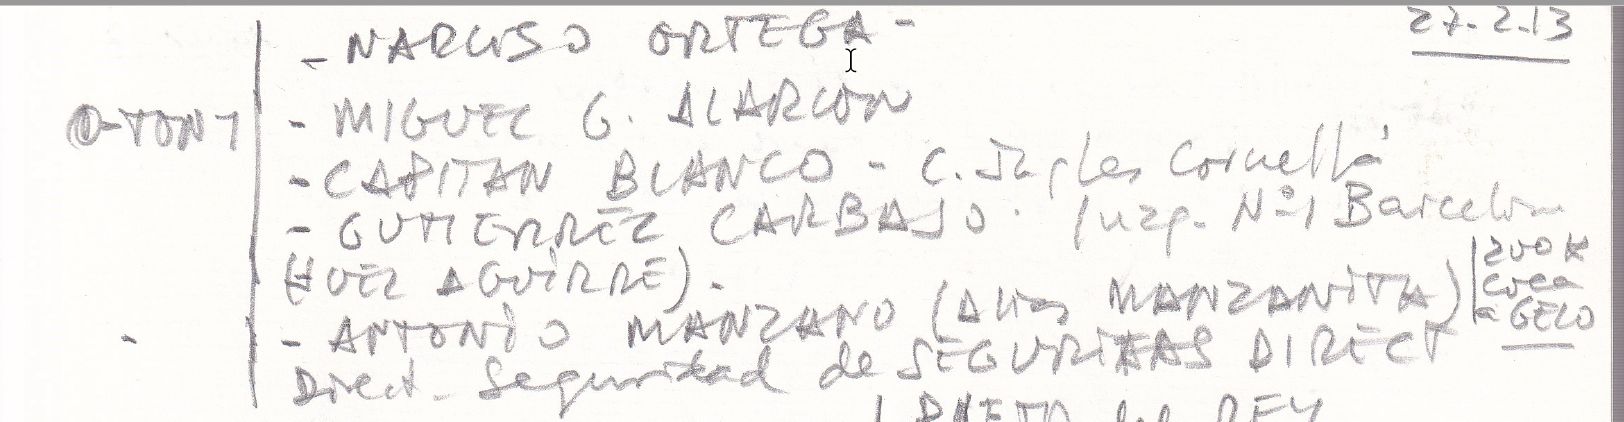 27-2-13
- NARCISO ORTEGA -
O-TONI
- MIGUEL G. ALARCON
- CAPITAN BLANCO - C. Ingles Cornellá
- GUTIERREZ CARBAJO. Juzg. Nº1 Barcelona
(JUEZ AGUIRRE).
- ANTONIO MANZANO (Alias MANZANITA)
200 K
coca
a GELO
Direct. Seguridad de SEGURITAS DIRECT
del REY